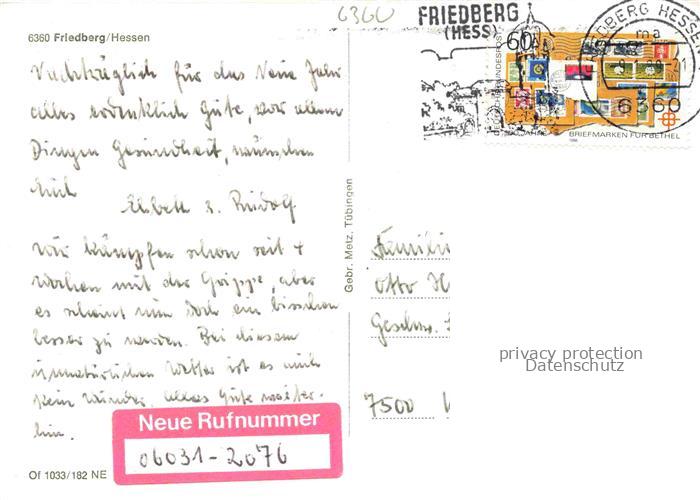 6360
6360 Friedberg/Hessen
Nachträglich für das Neue Jahr
alles erdenklich Gute, vor allem
Dingen Gesundheit, wünschen
Euch
Elsbeth u. Rudolf
Wir kämpfen schon seit 4
Wochen mit der Grippe, aber
es scheint nun doch ein bisschen
besser zu werden. Bei diesem
unnatürlichen Wetter ist es auch
kein Wunder. Alles Gute weiter-
hin.
Neue Rufnummer
06031-2076
Of 1033/182 NE
Gebr. Metz, Tübingen
FRIEDBERG
(HESS)
60
BUNDESPOST
BRIEFMARKEN FÜR BETHEL
DBERG HESSE
ma
6360
Familie
Otto
Geschw.
7500
privacy protection
Datenschutz